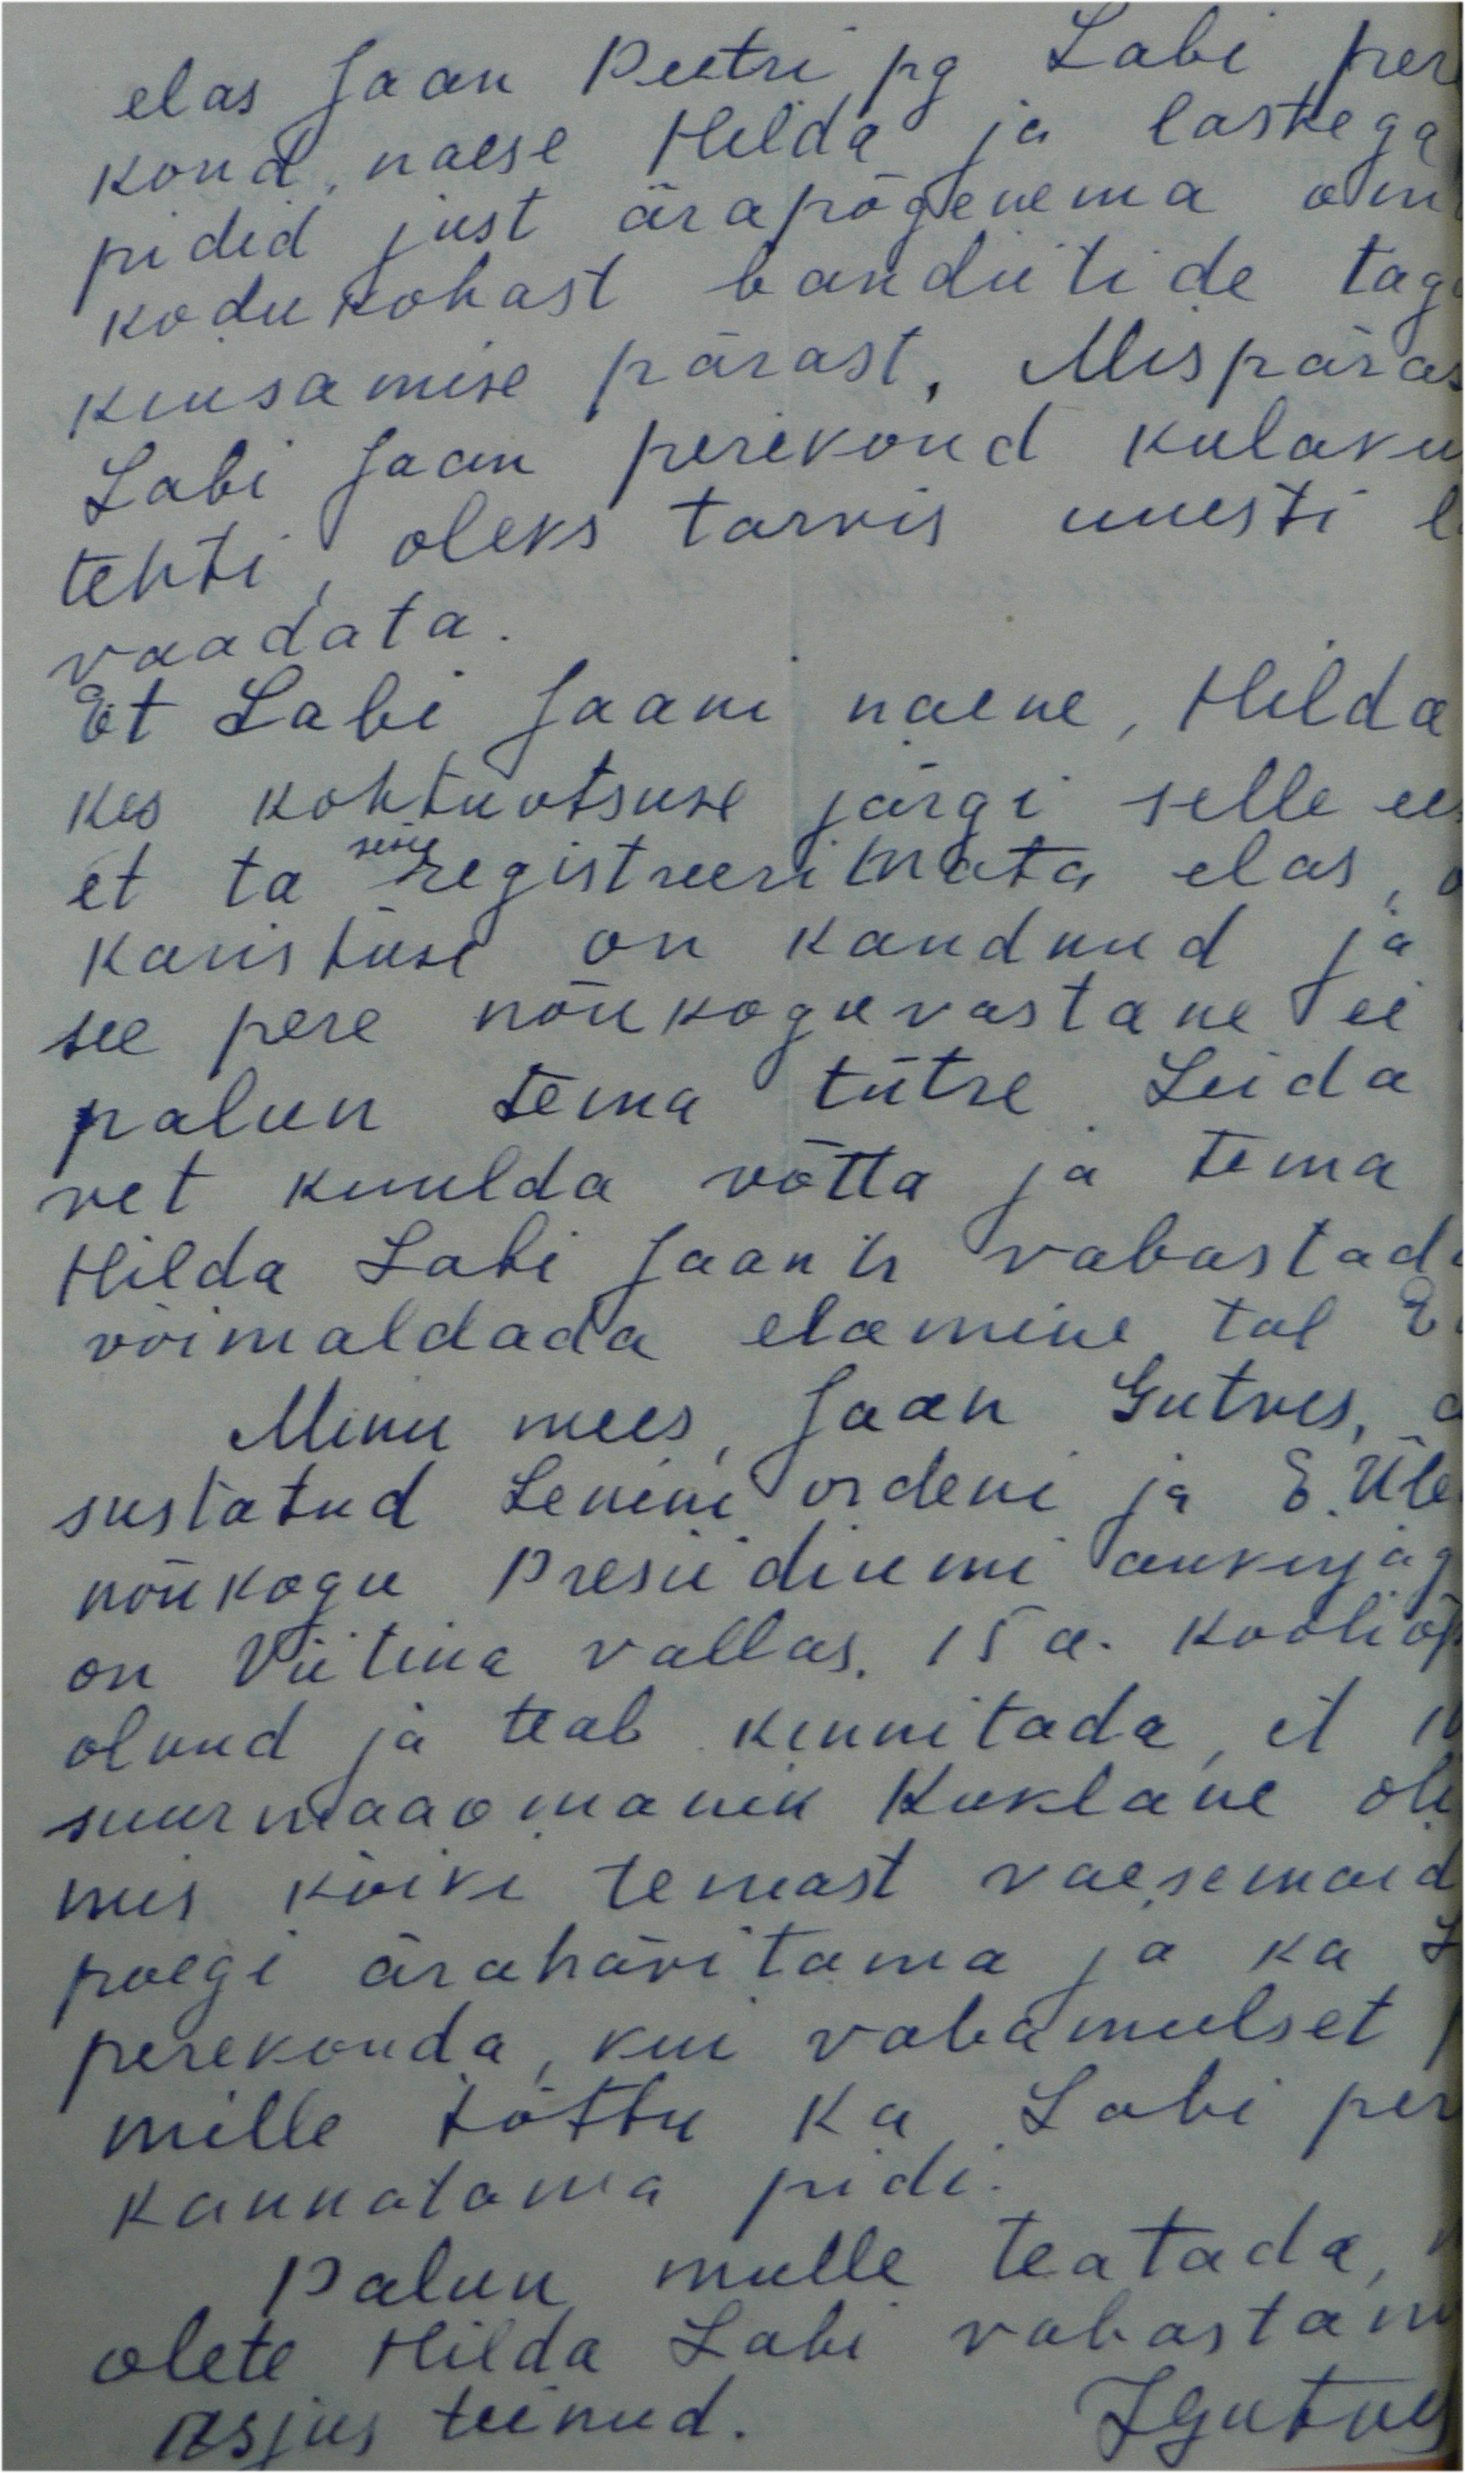 elas Jaan Peetri pg Labi pere
kond, naese Hilda ja lastega
pidid just ärapõgenema om
kodukohast bandiitide tag
kiusamise pärast. Mispäras
Labi Jaan perekond kulaku
tehti, oleks tarvis uuesti l
vaadata.
Et Labi Jaani naene, Hilda
kes kohtuotsuse järgi selle ee
et ta siin registreerimata elas,
karistuse on kandnud ja
see pere nõukoguvastane ei
palun tema tütre Leida
vet kuulda võtta ja tema
Hilda Labi Jaani tr vabastad
võimaldada elamine tal E
Minu mees, Jaan Gutves, a
sustatud Lenini ordeni ja E. Üle
nõukogu Presiidiumi aukirjag
on Viitina vallas, 15 a. kooliõp
olnud ja teab kinnitada, et
suurmaaomanik Kuklane oli
mis kõiki temast vaesemaid
poegi ärahävitama ja ka L
perekonda, kui vabameelset p
mille tõttu ka Labi per
kannatama pidi.
Palun mulle teatada, m
olete Hilda Labi vabastam
asjus teinud. JGutves